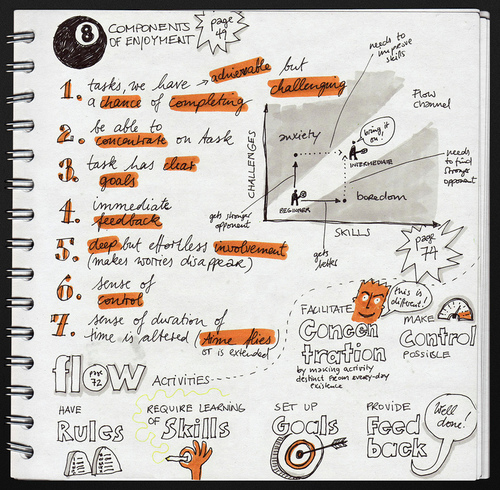 8 COMPONENTS
OF ENJOYMENT
page
49
1. tasks, we have → achievable but challenging
a chance of completing
2. be able to
concentrate on task
3. task has clear
goals
4. immediate
feedback
5. deep but effortless involvement
(makes worries disappear)
6. sense of
control
7. sense of duration of
time is altered (time flies
or is extended
needs to
improve
skills
Flow
channel
CHALLENGES
anxiety
bring it
on!
INTERMEDIATE
needs
to find
stronger
opponent
BEGINNER
boredom
gets stronger
opponent
SKILLS
gets
better
page
74
flow
page
72
ACTIVITIES
FACILITATE
Concen
tration
by making activity
distinct from every-day
existence
this is
different!
MAKE
Control
POSSIBLE
HAVE
Rules
REQUIRE LEARNING
OF Skills
SET UP
Goals
PROVIDE
Feed
back
Well
done!